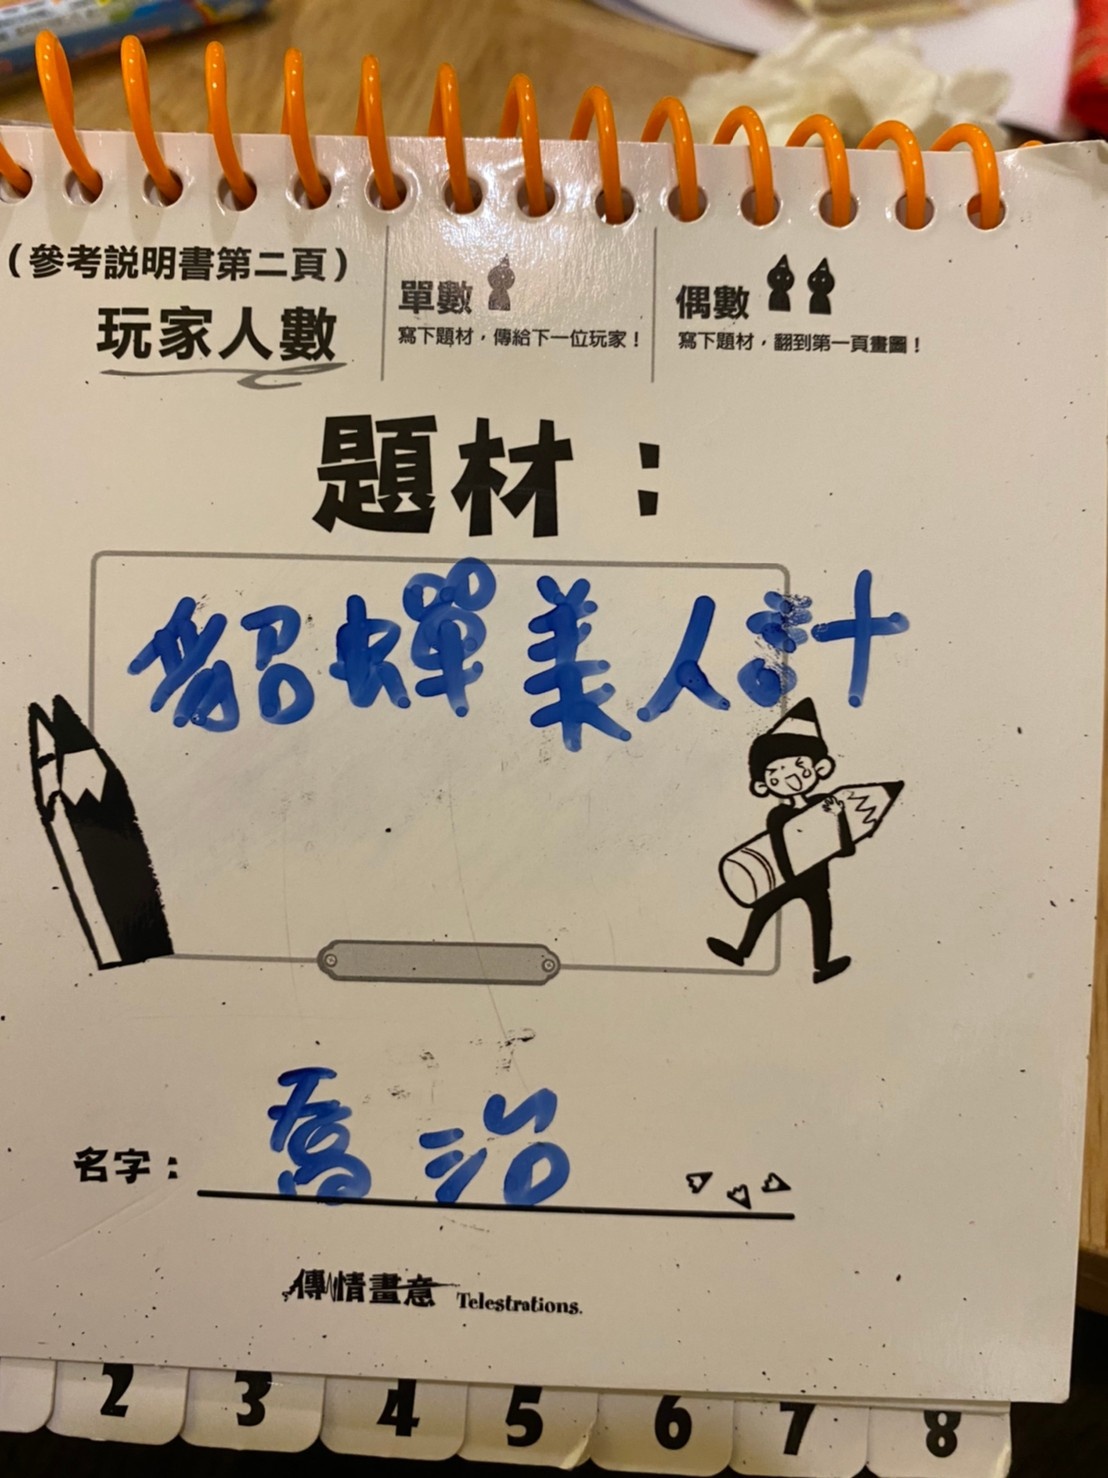 （參考説明書第二頁）
玩家人數
單數
寫下題材，傳給下一位玩家！
偶數
寫下題材，翻到第一頁畫圖！
題材：
貂蟬美人計
名字：喬治
傳情畫意 Telestrations.
2 3 4 5 6 7 8